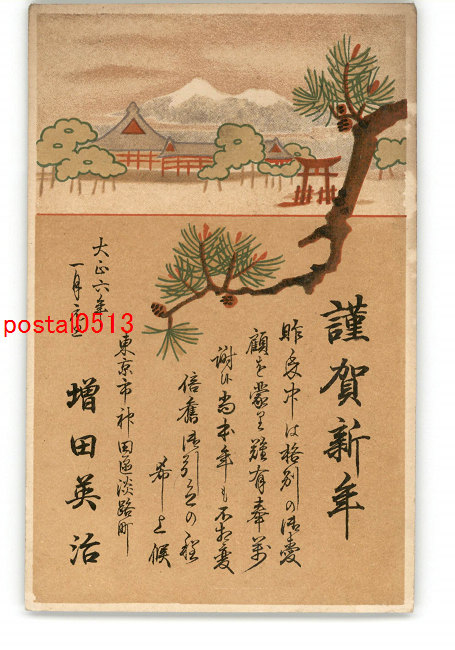 謹賀新年
昨年中は格別の御愛
顧を蒙り難有奉万
謝候尚本年も不相変
倍旧御引立の程
希上候
大正六年
一月
東京市神田区淡路町
増田英治
postal0513